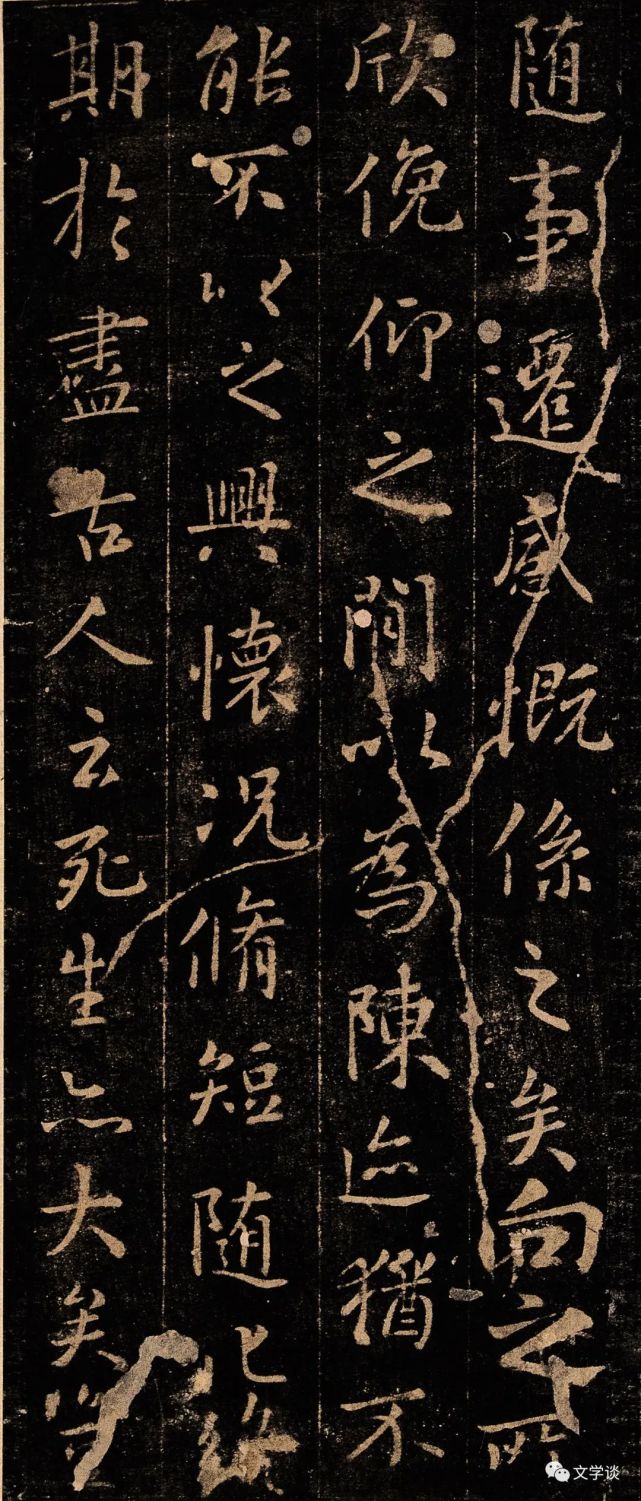 随事遷感慨係之矣向之所
欣俛仰之間以為陳迹猶不
能不以之興懷況脩短随化終
期於盡古人云死生亦大矣豈
文学谈